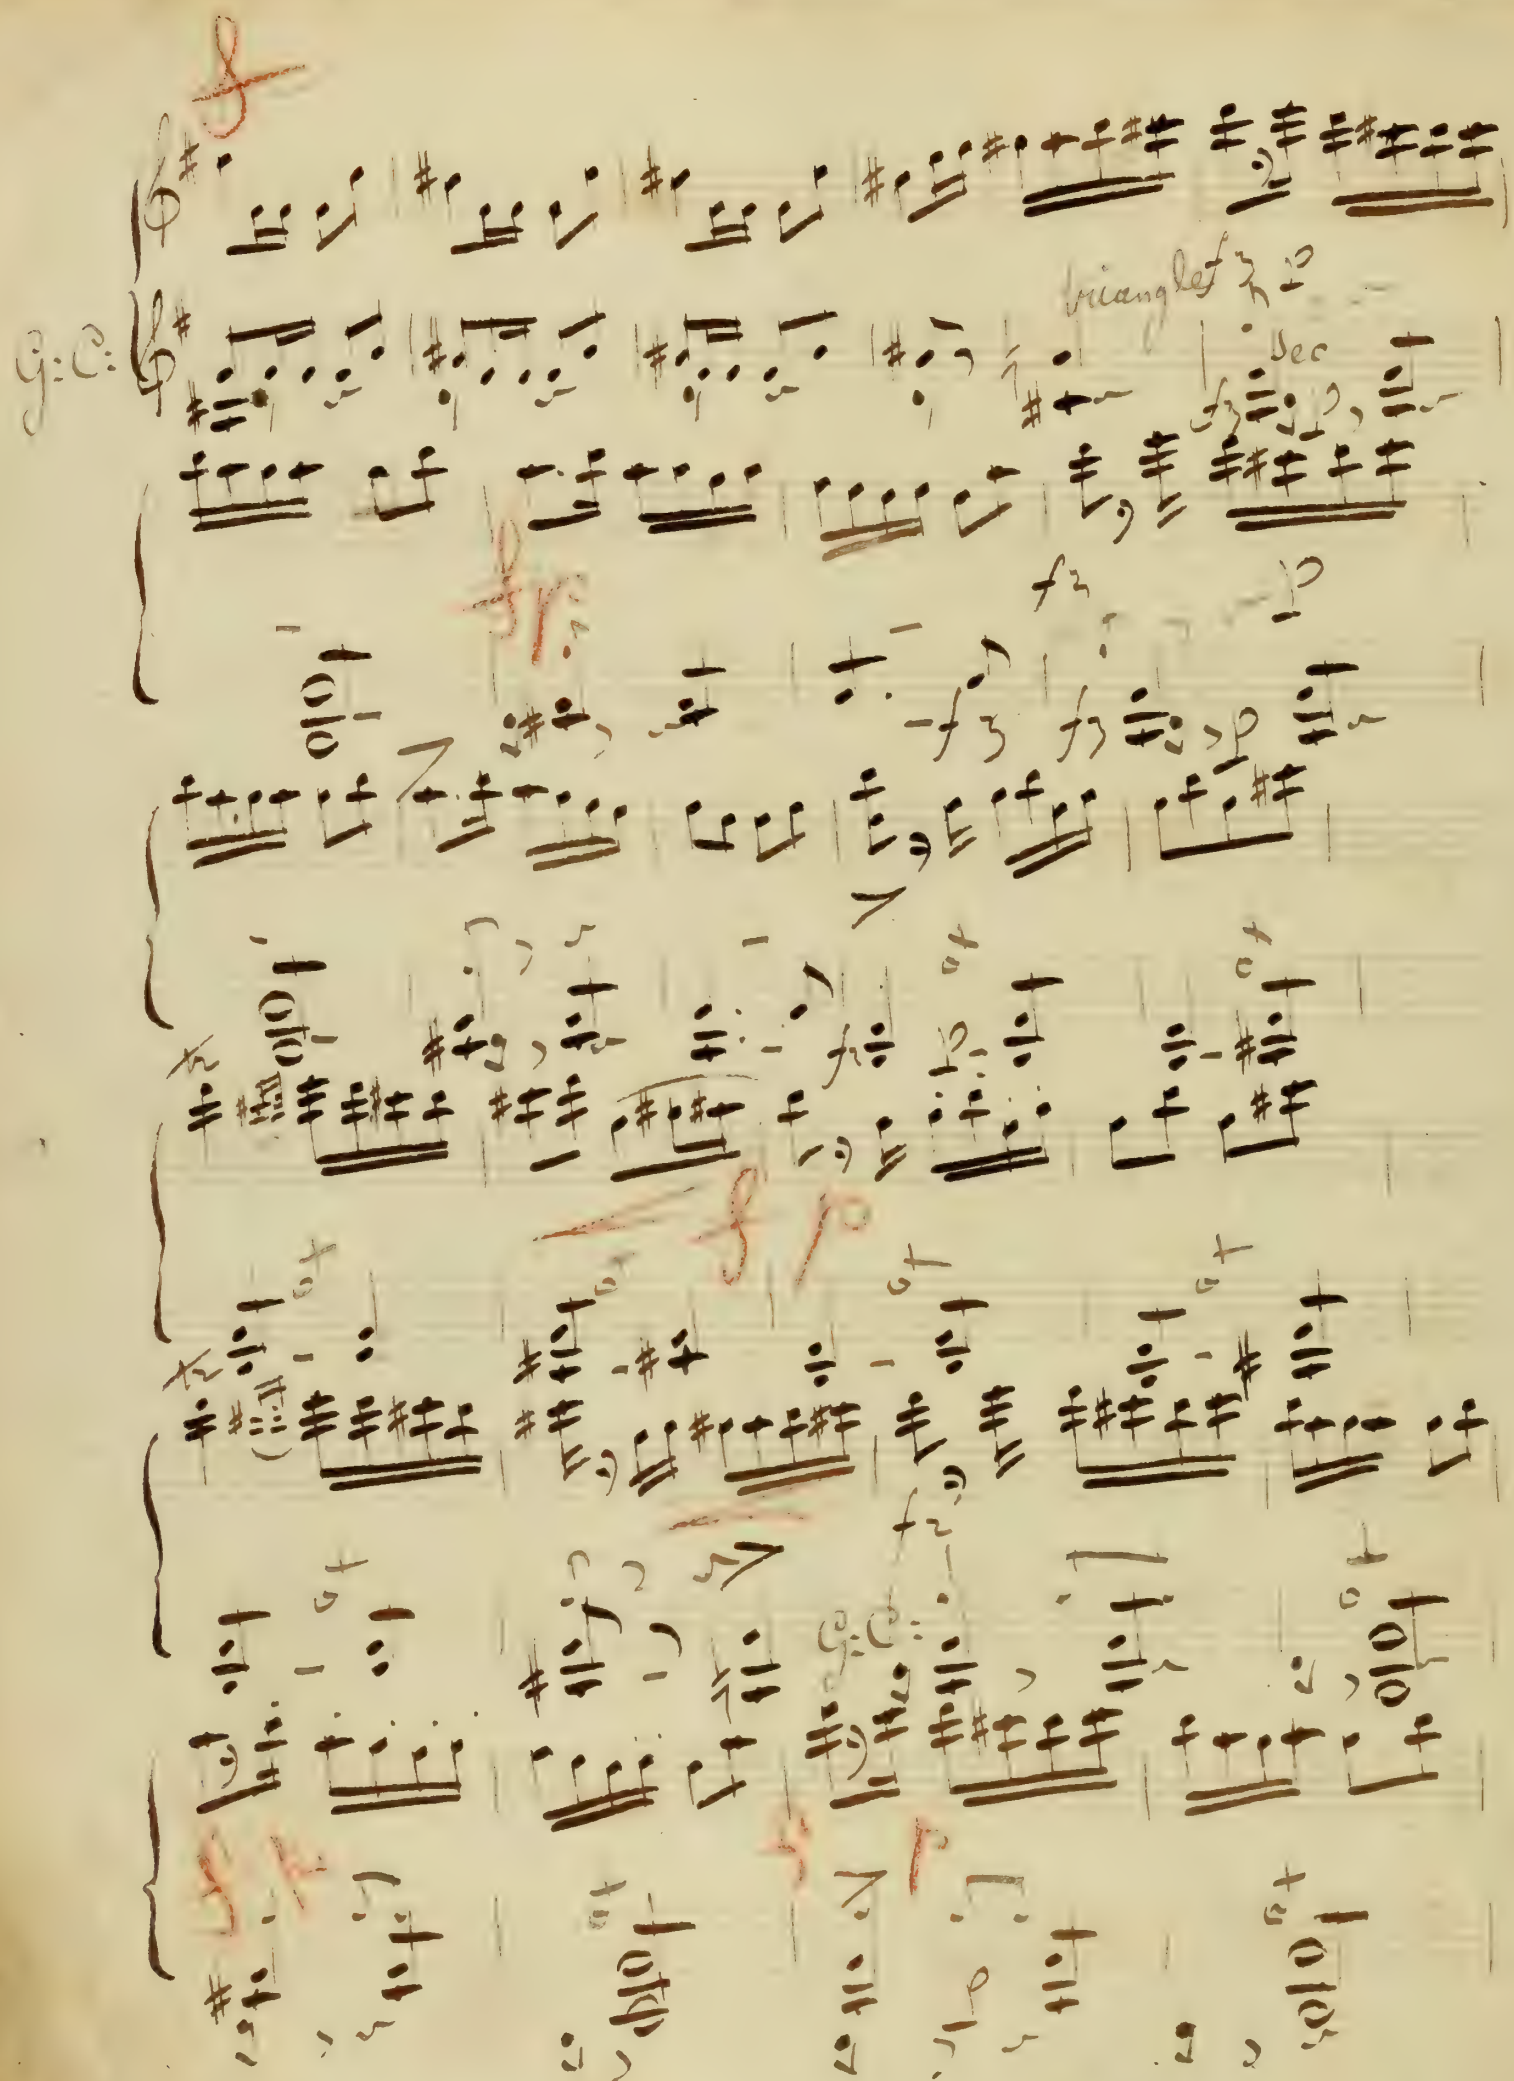 f
triangle fz p
G: C: sec
fz p
fp
fz p
fz fz p
fz p
tr
f p
tr
fz
G: C:
f p
f p
p